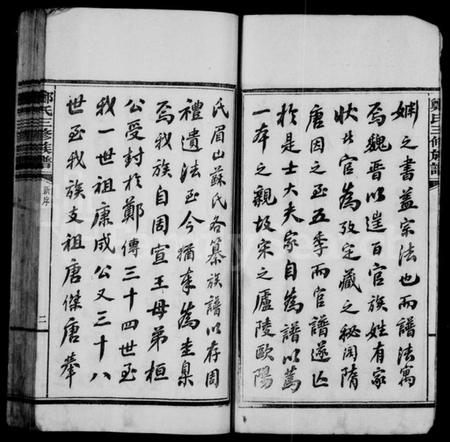 鄭氏三修族譜
婣之書葢宗法也而譜法寓
焉魏晉以遑百官族姓有家
狀此官為攷定藏之秘閣隋
唐因之至五季而官譜遂亡
於是士大夫家自為譜以篤
一本之親故宋之廬陵歐陽
氏眉山蘇氏各纂族譜以存周
禮遺法至今猶奉為圭臬
焉我族自周宣王母弟桓
公受封於鄭傳三十四世至
我一世祖康成公又三十八
世至我族支祖唐傑唐摰
鄭氏三修族譜
新序
二